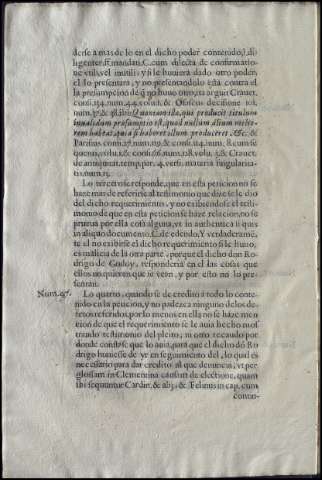 derse a mas de lo en el dicho poder contenido, l. di-
ligenter. ff. mandati, C. cum dilecta de confirmatio-
ne vtili, vel inutili, y si le huuiera dado otro poder,
el lo presentara, y no presentandolo està contra el
la presumpcion de q̃ no huuo otro, ita arguit Crauet.
consi. 154. num. 44. volu. 1. & Ofascus decisione 101.
num. Quia mortuo ibi, qui producit titulum
inualidum præsumptio est, quod nullum alium melio-
rem habeat, quia si haberet illum produceret, &c. &
Parisius consi. 27. num. & consi. 114. num. 8. cum se-
quenti, volu. & consi. 56. num. 118. volu. 3. & Crauet.
de antiquitat. temp. par. 4. vers. materia singularis
num.
Lo tercero se responde, que en esta peticion no se
haze mas de referirse al testimonio que dize se le dio
del dicho requerimiento, y no exibiendose el testi-
monio de que en esta peticion se haze relacion, no se
prueua por ella cosa alguna, vt in authentica si quis
in aliquo documento, C. de edendo, Y verdaderamē-
te el no exibirse el dicho requerimiento si le huuo,
es malicia de la otra parte, porque el dicho don Ro-
drigo de Godoy, responderia en el las cosas que
ellos no quieren que se vean, y por esto no lo pre-
sentan.
Num. 97. Lo quarto, quando se de credito a todo lo conte-
nido en la peticion, y no padezca ninguno de los de-
fetos referidos, por lo menos en ella no se haze men
cion de que el requerimiento se le auia hecho mos-
trado testimonio del pleito, ni otro recaudo por
donde constasse que lo auia, para que el dicho dō Ro
drigo huuiesse de yr en seguimiento del, lo qual es
necessario para dar credito al que denuncia, vt per
glossam in Clementina causam de electione, quam
ibi sequuntur Cardin. & alij, & Felinus in cap. cum
contin-